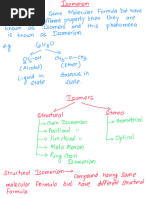 Isomerism
Same Molecular Formula but have
different property then they are
known as Isomers and this phenomena
is known as Isomerism.
e.g.
C2H6O
CH3-CH2-OH
CH3-O-CH3
(Alcohol)
(Ether)
Liquid in
state
Gaseous in
state
Isomers
Structural
Stereo
Chain Isomerism
Geometrical
Positional "
Functional "
Optical
Meta Merism
Ring Chain
Isomerism
Structural Isomerism
Compound having same
molecular Formula but have different Structural
Formula